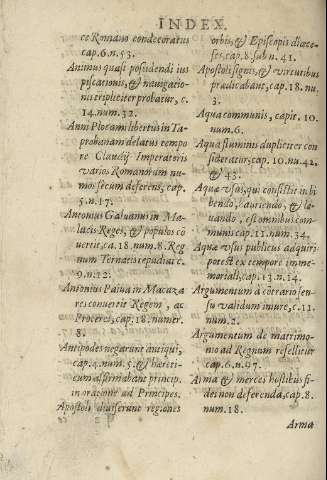 INDEX.
ce Romano condecoratus
cap.6.n.53.
Animus quasi possidendi ius
piscationis, & nauigatio-
nis tripliciter probatur, c.
14.num.32.
Anni Plocami libertus in Ta-
probanam delatus tempo
re Claudij Imperatoris
varios Romanorum nu-
mos secum deferens, cap.
5.n.17.
Antonius Galuanus in Ma-
lacis Reges, & populos cõ
uertit, ca.18.num.8. Reg
num Ternatis repudiat c.
9.n.12.
Antonius Paiua in Macaza
res conuertit Regem, ac
Proceres, cap.18.numer.
8.
Antipodes negarunt antiqui,
cap.4.num.5. & hæreti-
cum affirmabant princip.
in oratione ad Principes.
Apostoli diuiserunt regiones
orbis, & Episcopis diœce-
ses, cap.8.sub n.41.
Apostoli signis, & virtutibus
prædicabant, cap.18.nu.
3.
Aqua communis, capit. 10.
num.6.
Aqua fluminis dupliciter con
sideratur, cap.10.nu.42.
& 43.
Aquæ vsus, qui consistit in bi
bendo, hauriendo, & la-
uando, est omnibus com-
munis cap.11.num.34.
Aquæ vsus publicus adquiri
potest ex tempore imme-
moriali, cap.13.n.14.
Argumentum à cõtrario sen-
su validum in iure, c.11.
num.2.
Argumentum de matrimo-
nio ad Regnum refellitur
cap.6.n.97.
Arma & merces hostibus fi-
dei non deferenda, cap.8.
num.18.
Arma